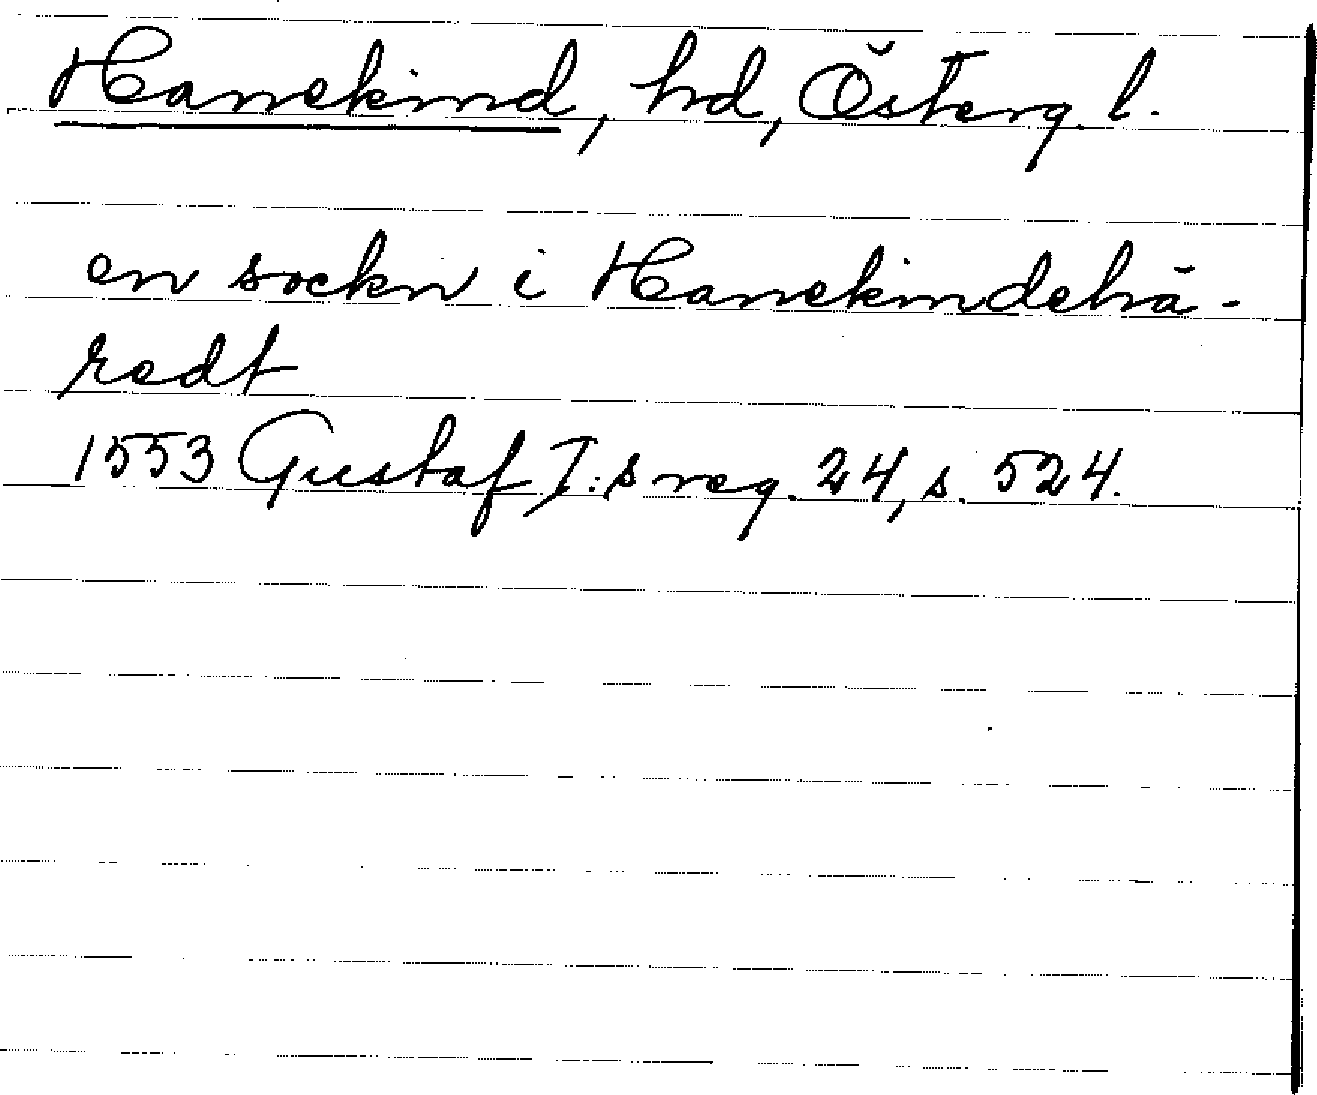 Hanekind, hd, Österg. l.
en sockn i Hanekindehä-
redt
1553 Gustaf I:s reg. 24, s. 524.